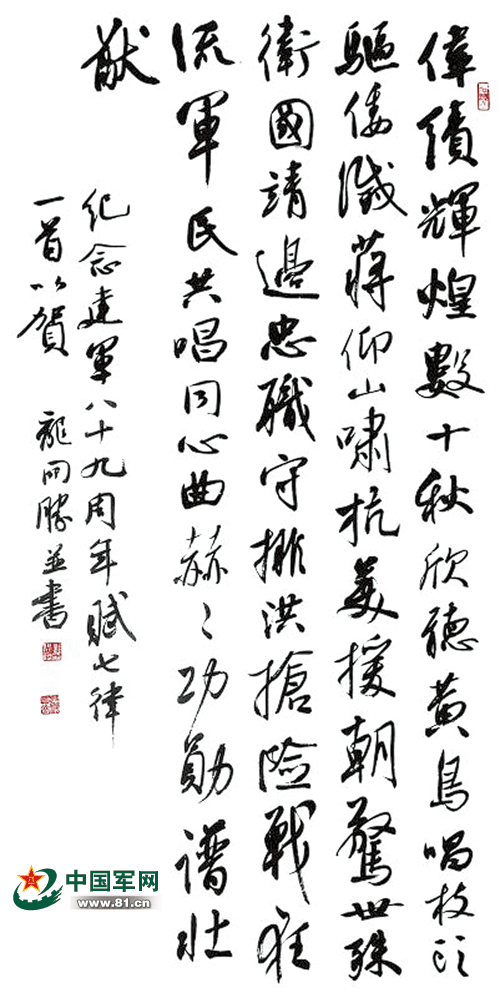 偉績輝煌數十秋欣聽黃鳥唱枝頭
驅倭滅蔣仰山嘯抗美援朝驚世殊
衛國靖邊忠職守排洪搶險戰狂
流軍民共唱同心曲赫〻功勛譜壯
猷
紀念建軍八十九周年賦七律
一首以賀 龍開勝並書
中国军网
www.81.cn